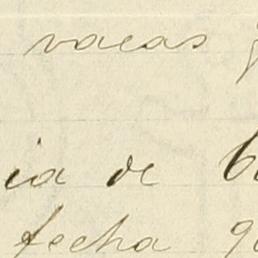 vacas
ia de
fecha